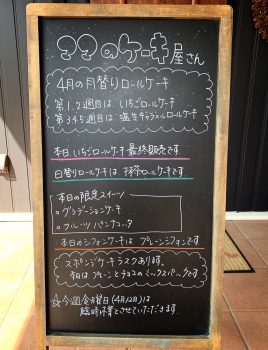 ママのケーキ屋さん
4月の月替りロールケーキ
第1.2週目は いちごロールケーキ
第3.4.5週目は 塩生キャラメルロールケーキ
本日、いちごロールケーキ最終販売です
日替りロールケーキは 抹茶ロールケーキです
本日の限定スイーツ
・グラデーションケーキ
・フルーツパンナコッタ
本日のシフォンケーキは プレーンシフォンです
スポンジケーキラスクあります。
本日はプレーンとチョコのミックスパックです
☆今週金曜日(4月12日)は
臨時休業とさせていただきます。